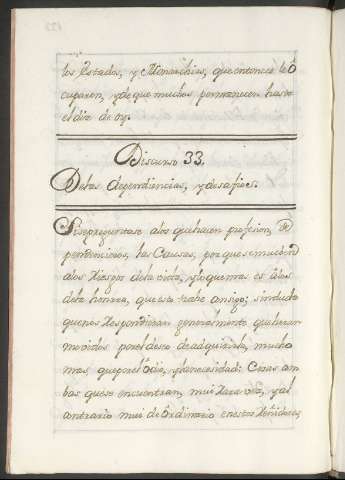 los Estados, y Monarchias, que entonces se ô
cuparon, y de que muchos permanecen hasta
el dia de oy.
Discurso 33.
De las dependiencias, y desafios.
Si se preguntase a los que hacen profesion, de
pendencieros, las Causas, por que se meten
a los Riesgos de la vida, y lo que mas es a los
de la honrra, que esta trahe consigo; sin duda
que nos Responderan generalmente que heran
movidos por el deseo de adquirirla, mucho
mas, que por el ôdio, y la necesidad: Cosas am
bas que se encuentran, mui Rara vez, y al
contrario mui de ôrdinario en estos Reñidores